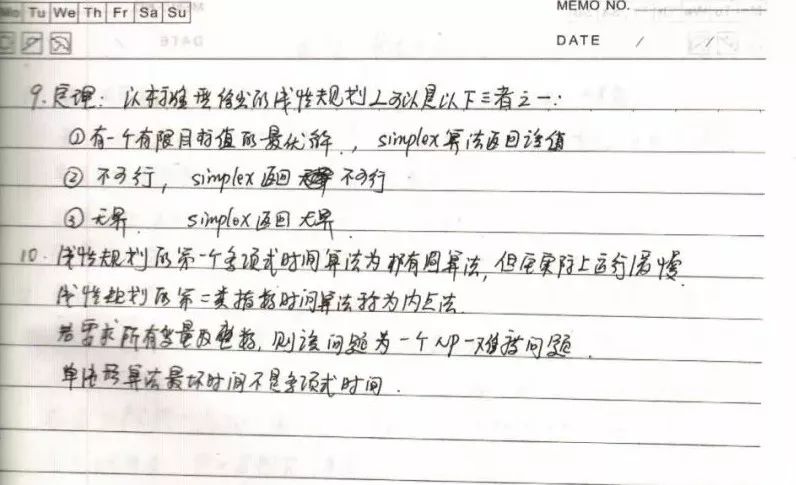 Mo Tu We Th Fr Sa Su
MEMO NO.
DATE / /
9. 定理: 以标准型给出的线性规划L可以是以下三者之一:
①有一个有限目标值的最优解, simplex算法返回该值
② 不可行, simplex返回 不可行
③ 无界. simplex返回 无界.
10. 线性规划的第一个多项式时间算法为椭圆算法, 但在实际上运行缓慢.
线性规划的第二类指数时间算法称为内点法.
若需求所有变量取整数, 则该问题为一个NP-难问题.
单纯形算法最坏时间不是多项式时间.